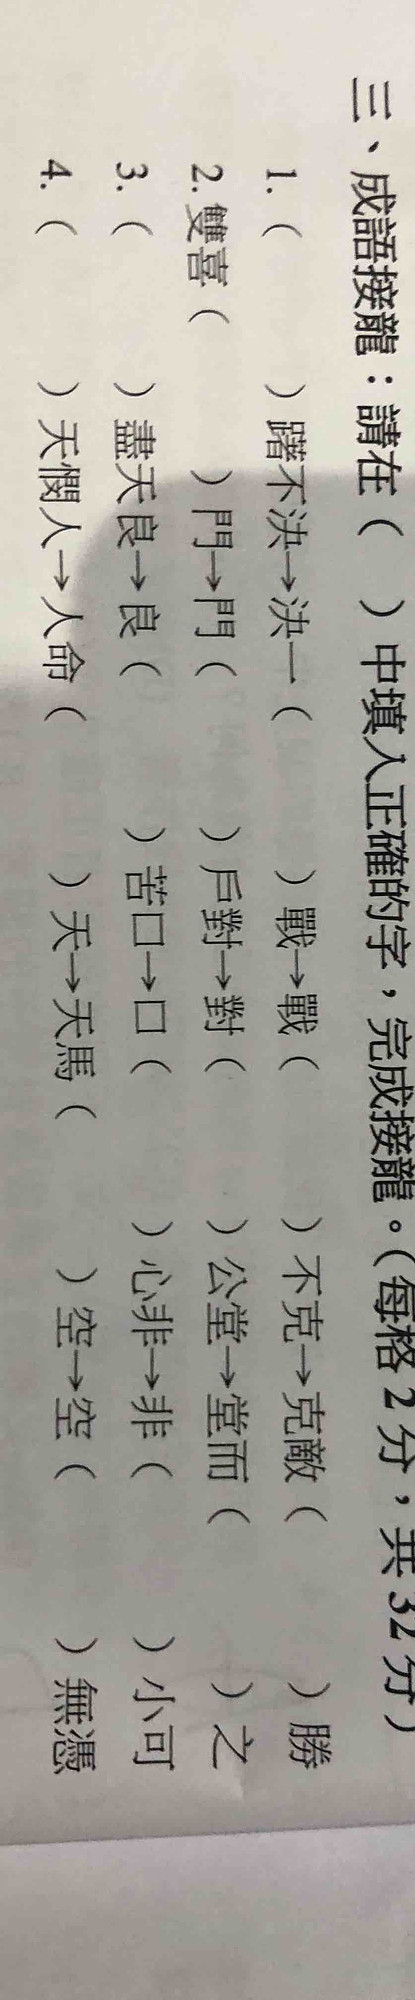 三、成語接龍：請在（　）中填入正確的字，完成接龍。（每格2分，共32分）
1.（　）躇不決→決一（　）戰→戰（　）不克→克敵（　）勝
2.雙喜（　）門→門（　）戶對→對（　）公堂→堂而（　）之
3.（　）盡天良→良（　）苦口→口（　）心非→非（　）小可
4.（　）天憫人→人命（　）天→天馬（　）空→空（　）無憑